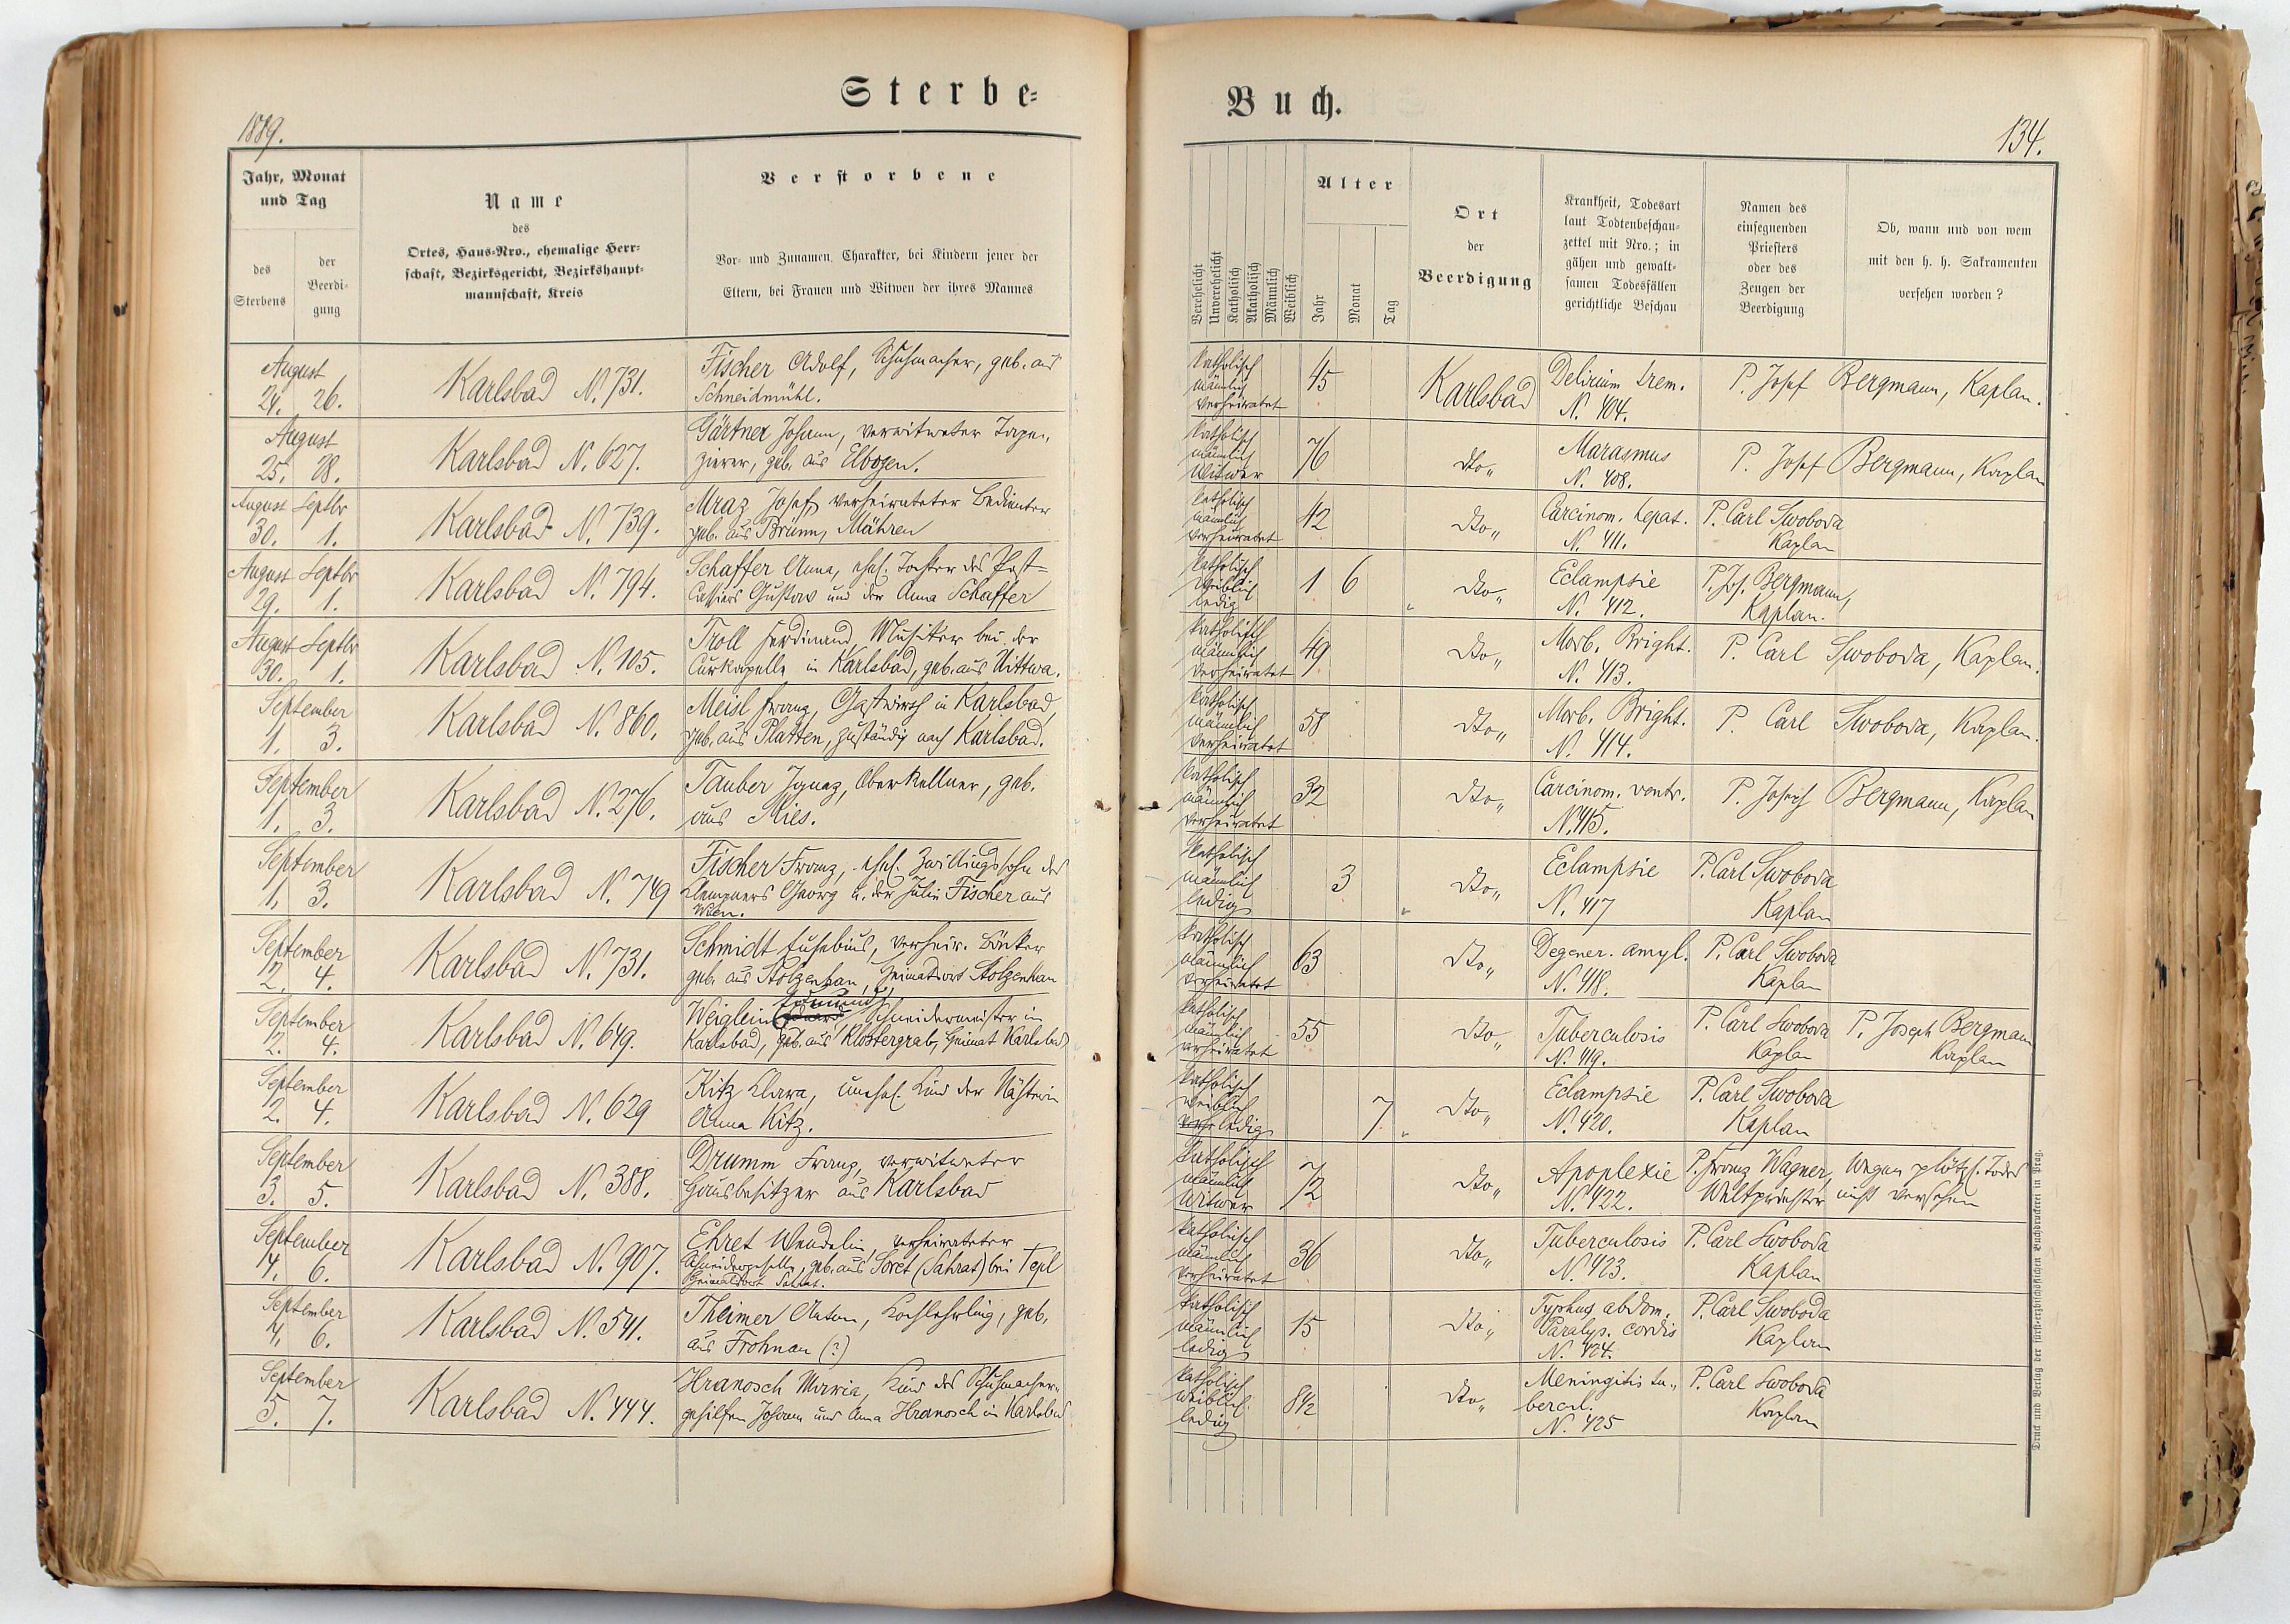 Sterbe-
Buch.
1889.
134.
Jahr, Monat
und Tag
des
Sterbens
der
Beerdi-
gung
Name
des
Ortes, Haus-Nro., ehemalige Herr-
schaft, Bezirksgericht, Bezirkshaupt-
mannschaft, Kreis
Verstorbene
Vor- und Zunamen, Charakter, bei Kindern jener der
Eltern, bei Frauen und Witwen der ihres Mannes
Verehelicht
Unverehelicht
Katholisch
Akatholisch
Männlich
Weiblich
Alter
Jahr
Monat
Tag
Ort
der
Beerdigung
Krankheit, Todesart
laut Todtenbeschau-
zettel mit Nro.; in
gähen und gewalt-
samen Todesfällen
gerichtliche Beschau
Namen des
einsegnenden
Priesters
oder des
Zeugen der
Beerdigung
Ob, wann und von wem
mit den h. h. Sakramenten
versehen worden?
August
24. 26.
Karlsbad N. 731.
Fischer Adolf, Schuhmacher, geb. aus
Schneidmühl.
katholisch
männlich
verheiratet
45
Karlsbad
Delirium trem.
N. 404.
P. Josef Bergmann, Kaplan.
August
25. 28.
Karlsbad N. 627.
Gärtner Johann, verwitweter Tape„
zierer, geb. aus Elbogen.
katholisch
männlich
Witwer
76
dto„
Marasmus
N. 408.
P. Josef Bergmann, Kaplan
August Septbr
30. 1.
Karlsbad N. 739.
Mraz Josef, verheirateter Bedienter
geb. aus Brünn, Mähren
katholisch
männlich
verheiratet
42
dto„
Carcinom. hepat.
N. 411.
P. Carl Swoboda
Kaplan
August Septbr
29. 1.
Karlsbad N. 794.
Schaffer Anna, ehel. Tochter des Post-
Cassiers Gustav und der Anna Schaffer
katholisch
weiblich
ledig
1 6
dto„
Eclampsie
N. 412.
P. Jos. Bergmann,
Kaplan.
August Septbr
30. 1.
Karlsbad N. 105.
Troll Ferdinand, Musiker bei der
Curkapelle in Karlsbad, geb. aus Uittwa.
katholisch
männlich
verheiratet
49
dto„
Morb. Bright.
N. 413.
P. Carl Swoboda, Kaplan.
September
1. 3.
Karlsbad N. 860.
Meisl Franz, Gastwirth in Karlsbad,
geb. aus Platten, zuständig nach Karlsbad.
katholisch
männlich
verheiratet
58
dto„
Morb. Bright.
N. 414.
P. Carl Swoboda, Kaplan.
September
1. 3.
Karlsbad N. 276.
Tauber Ignaz, Oberkellner, geb.
aus Mies.
katholisch
männlich
verheiratet
32
dto„
Carcinom. ventr.
N. 415.
P. Josef Bergmann, Kaplan
September
1. 3.
Karlsbad N. 749
Fischer Franz, ehel. Zwillingssohn des
Klempners Georg u. der Julie Fischer aus
Wien.
katholisch
männlich
ledig
3
dto„
Eclampsie
N. 417
P. Carl Swoboda
Kaplan
September
2. 4.
Karlsbad N. 731.
Schmidt Eusebius, verheir. Bäcker
geb. aus Stolzenhan, Heimatsort Stolzenhan
katholisch
männlich
verheiratet
63
dto„
Degener. amyl.
N. 418.
P. Carl Swoboda
Kaplan
September
2. 4.
Karlsbad N. 649.
Edmund,
Weiglein Eduard, Schneidermeister in
Karlsbad, geb. aus Klostergrab, Heimat Karlsbad
katholisch
männlich
verheiratet
55
dto„
Tuberculosis
N. 419.
P. Carl Swoboda
Kaplan
P. Joseph Bergmann
Kaplan
September
2. 4.
Karlsbad N. 629
Kitz Klara, unehel. Kind der Nähterin
Anna Kitz.
katholisch
weiblich
verh ledig
7
dto„
Eclampsie
N. 420.
P. Carl Swoboda
Kaplan
September
3. 5.
Karlsbad N. 388.
Drumm Franz, verwitweter
Hausbesitzer aus Karlsbad
katholisch
männlich
Witwer
72
dto„
Apoplexie
N. 422.
P. Franz Wagner,
Weltpriester
Wegen plötzl. Todes
nicht versehen
September
4. 6.
Karlsbad N. 907.
Ehret Wendelin, verheirateter
Schneidergeselle, geb. aus Soret (Sahrat) bei Tepl
Heimatsort Sahrat.
katholisch
männlich
verheiratet
36
dto„
Tuberculosis
N. 423.
P. Carl Swoboda
Kaplan
September
4. 6.
Karlsbad N. 541.
Theimer Anton, Kochlehrling, geb.
aus Frohnau (?)
katholisch
männlich
ledig
15
dto„
Typhus abdom.
Paralys. cordis
N. 424.
P. Carl Swoboda
Kaplan
September
5. 7.
Karlsbad N. 444.
Hranosch Maria, Kind des Schuhmacher„
gehilfen Johann und Anna Hranosch in Karlsbad
katholisch
weiblich
ledig
8½
dto„
Meningitis tu„
bercul.
N. 425
P. Carl Swoboda
Kaplan
Druck und Verlag der fürsterzbischöflichen Buchdruckerei in Prag.